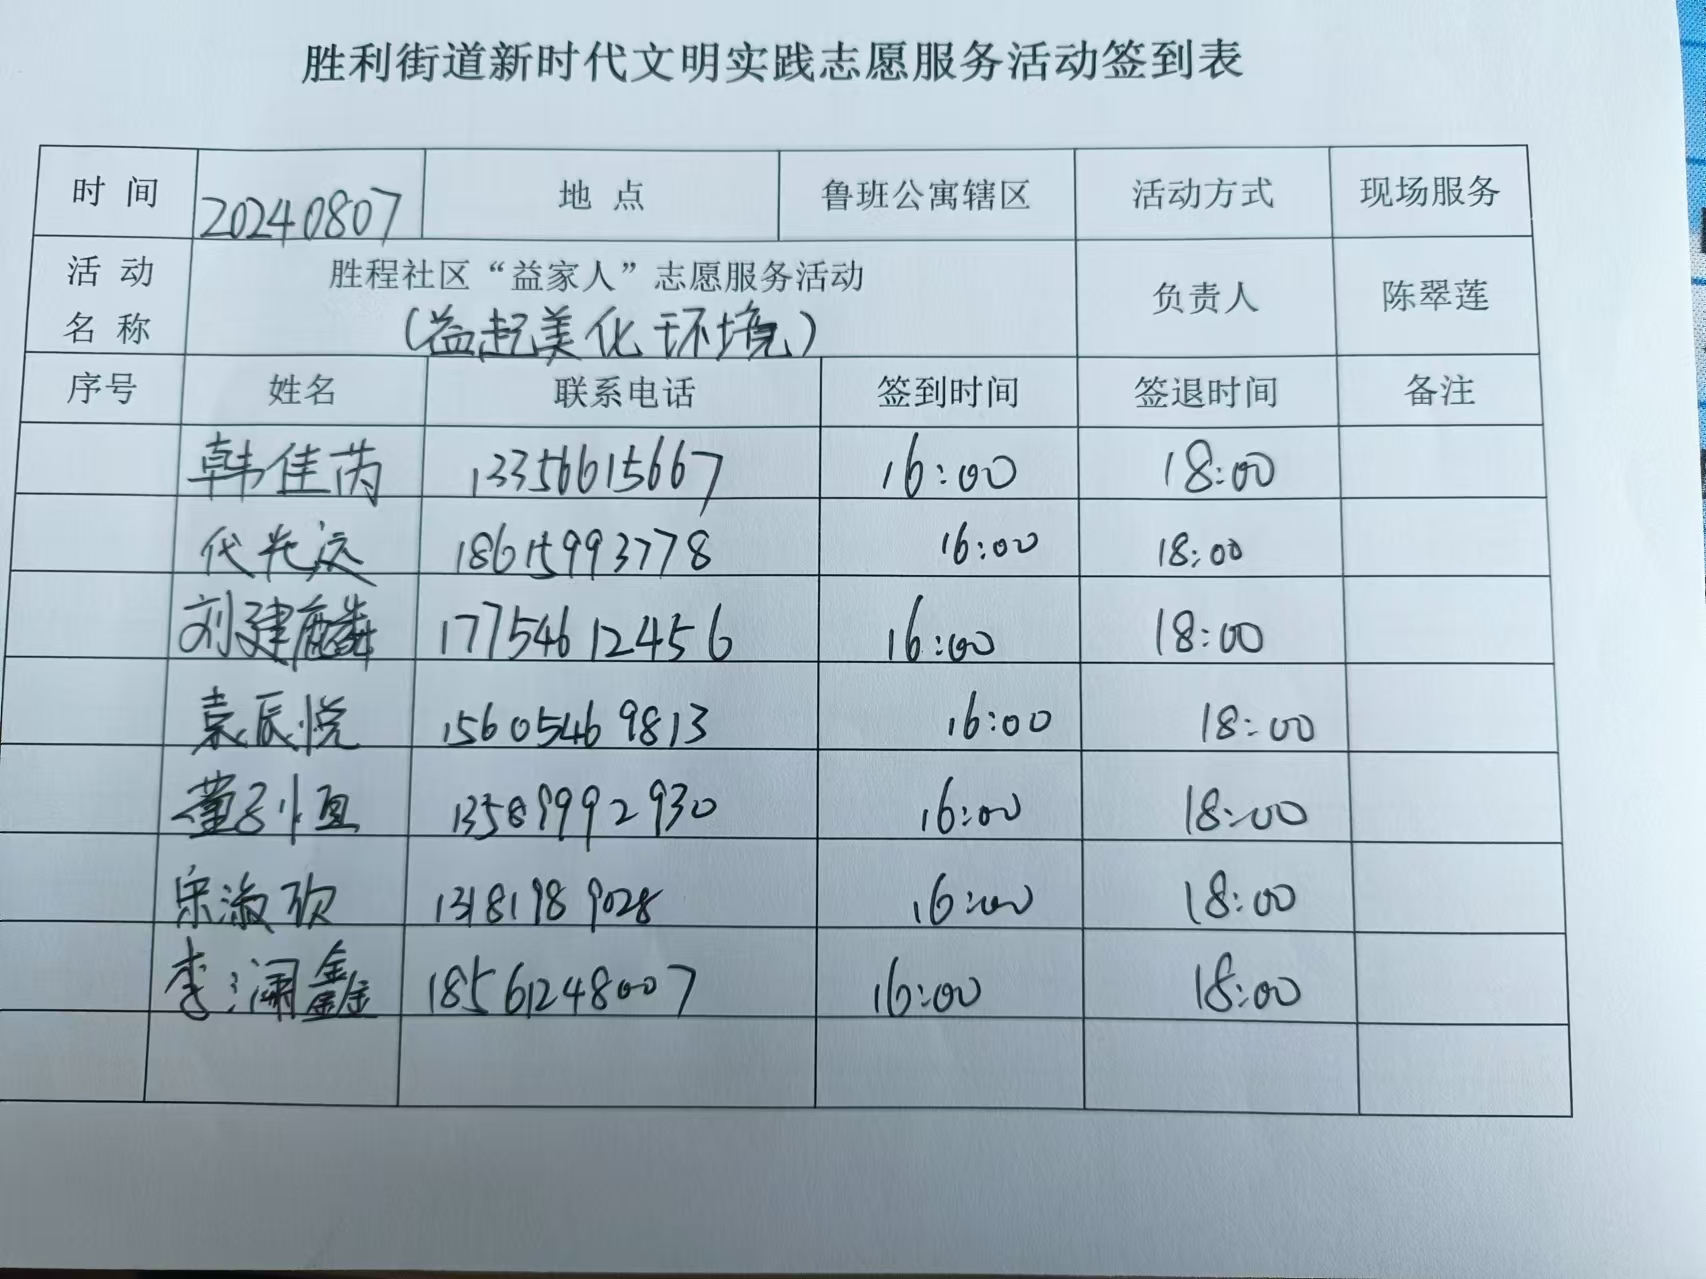 胜利街道新时代文明实践志愿服务活动签到表
时 间 20240807 地 点 鲁班公寓辖区 活动方式 现场服务
活 动 名 称 胜程社区“益家人”志愿服务活动 负责人 陈翠莲
(益起美化环境)
序号 姓名 联系电话 签到时间 签退时间 备注
韩佳芮 13356615667 16:00 18:00
代光庆 18615993778 16:00 18:00
刘建麟 17754612456 16:00 18:00
袁辰悦 15605469813 16:00 18:00
董子恒 13589992930 16:00 18:00
宋淑欣 13181989028 16:00 18:00
李润鑫 18561248007 16:00 18:00